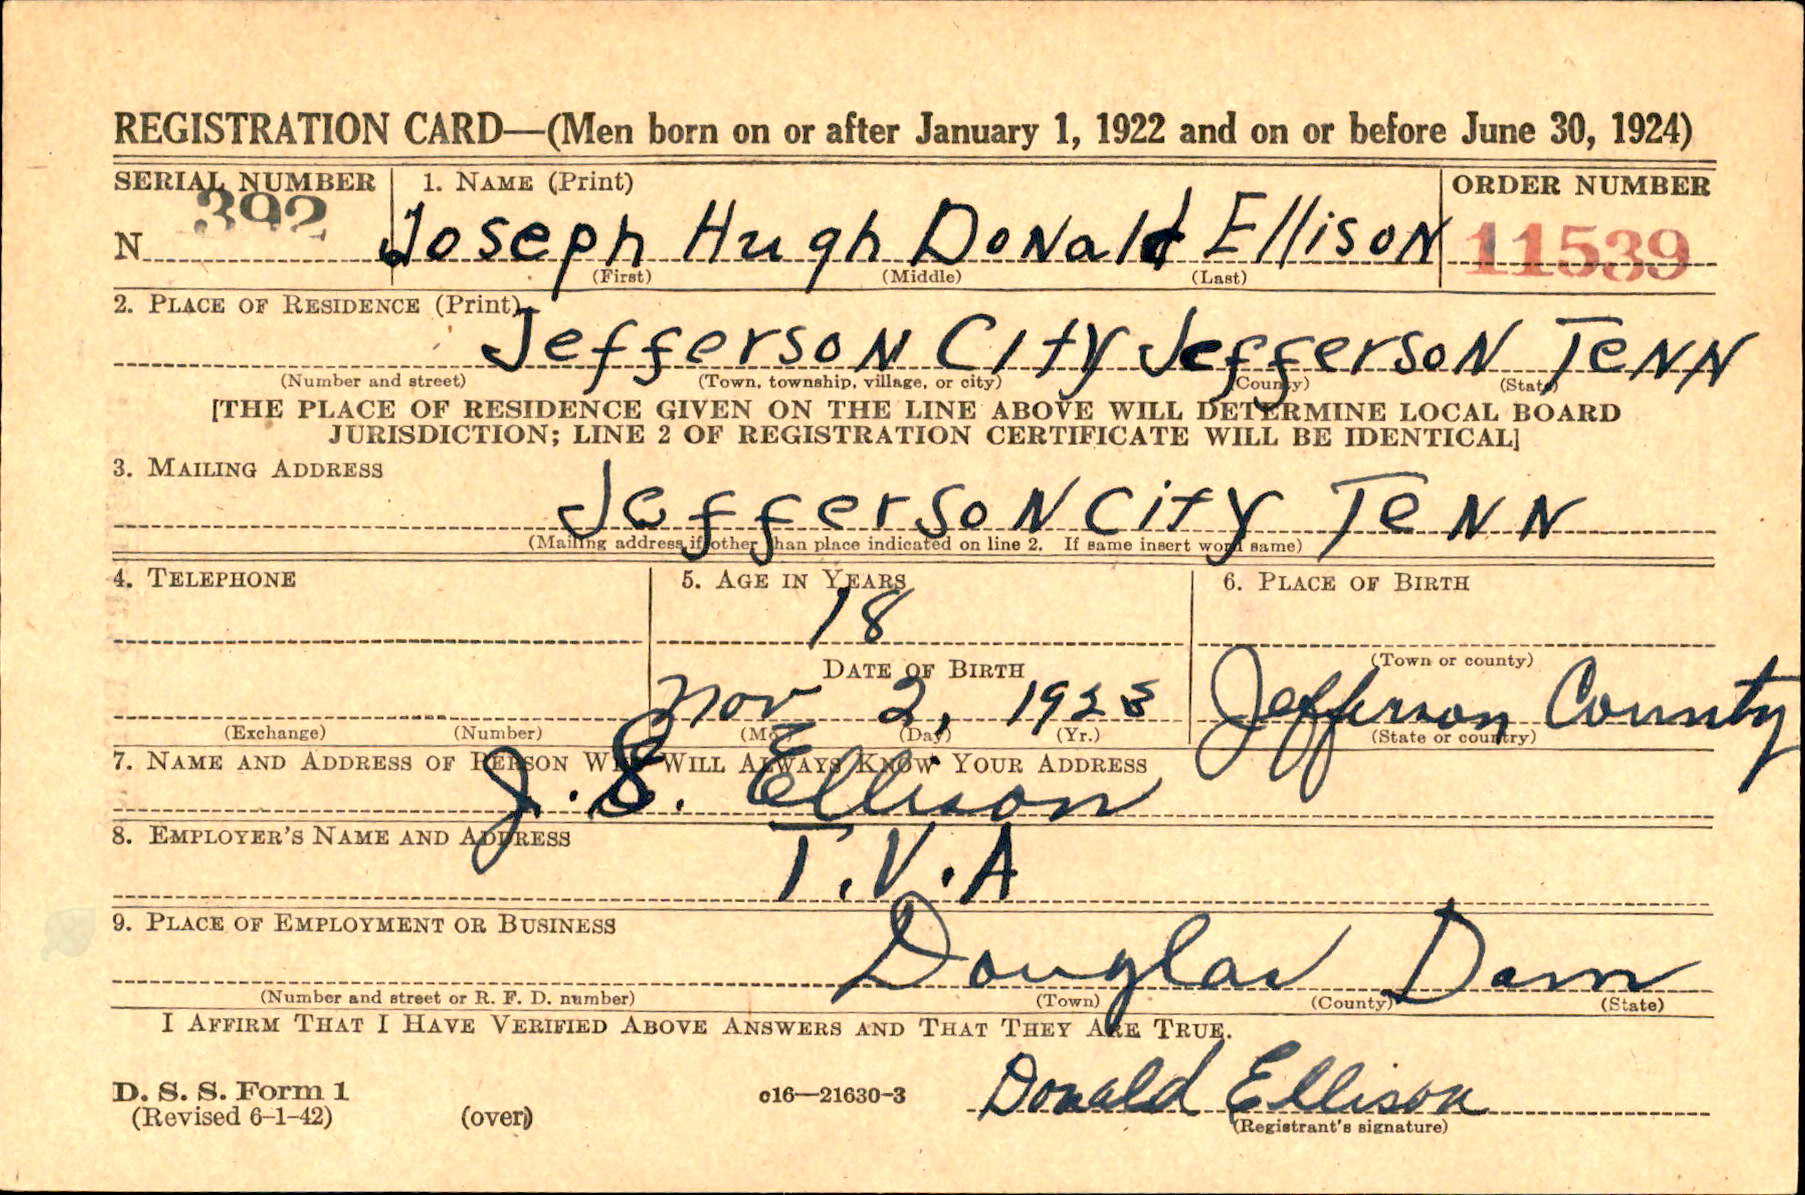 REGISTRATION CARD—(Men born on or after January 1, 1922 and on or before June 30, 1924)
SERIAL NUMBER 1. NAME (Print) ORDER NUMBER
N 392 Joseph Hugh Donald Ellison 11539
(First) (Middle) (Last)
2. PLACE OF RESIDENCE (Print)
Jefferson City Jefferson Tenn
(Number and street) (Town, township, village, or city) (County) (State)
[THE PLACE OF RESIDENCE GIVEN ON THE LINE ABOVE WILL DETERMINE LOCAL BOARD
JURISDICTION; LINE 2 OF REGISTRATION CERTIFICATE WILL BE IDENTICAL]
3. MAILING ADDRESS
Jefferson City Tenn
(Mailing address if other than place indicated on line 2. If same insert word same)
4. TELEPHONE 5. AGE IN YEARS 6. PLACE OF BIRTH
18
DATE OF BIRTH (Town or county)
Nov 2, 1923 Jefferson County
(Exchange) (Number) (Mo.) (Day) (Yr.) (State or country)
7. NAME AND ADDRESS OF PERSON WHO WILL ALWAYS KNOW YOUR ADDRESS
J. S. Ellison
8. EMPLOYER'S NAME AND ADDRESS
T.V.A
9. PLACE OF EMPLOYMENT OR BUSINESS
Douglas Dam
(Number and street or R. F. D. number) (Town) (County) (State)
I AFFIRM THAT I HAVE VERIFIED ABOVE ANSWERS AND THAT THEY ARE TRUE.
D. S. S. Form 1
(Revised 6-1-42) (over) c16—21630-3 Donald Ellison
(Registrant's signature)